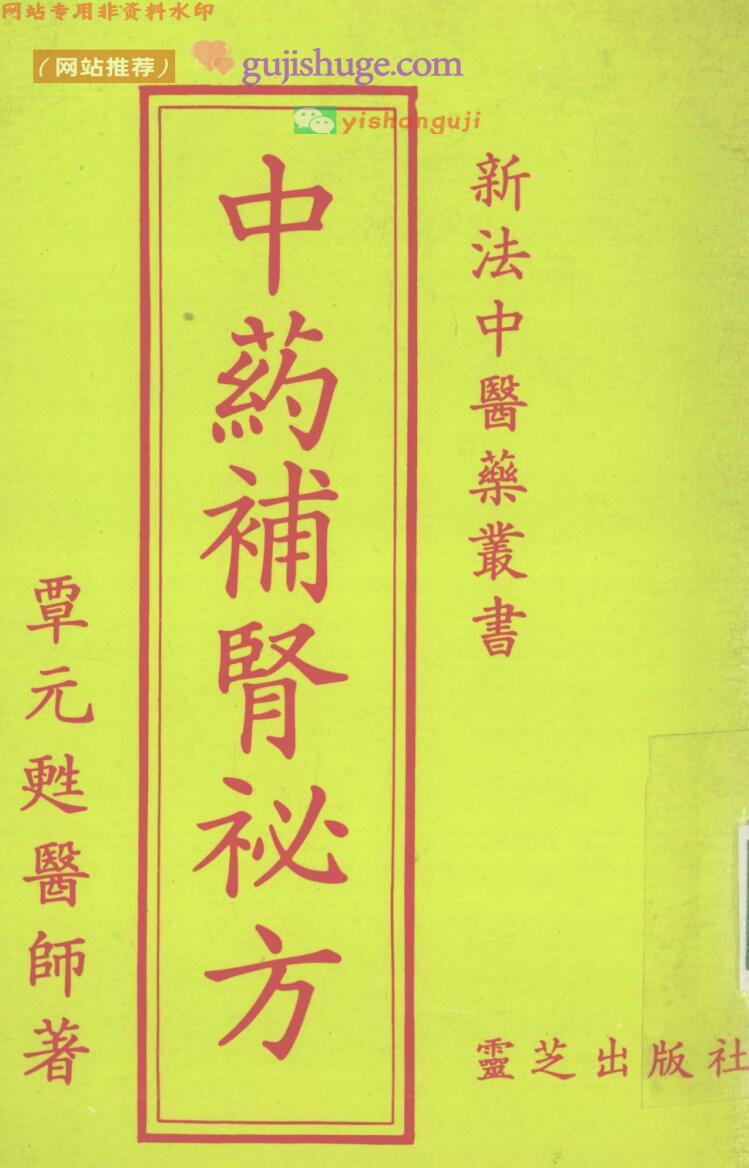 网站专用非资料水印
（网站推荐）
gujishuge.com
yishanguji
新法中醫藥叢書
中葯補腎祕方
覃元甦醫師著
靈芝出版社